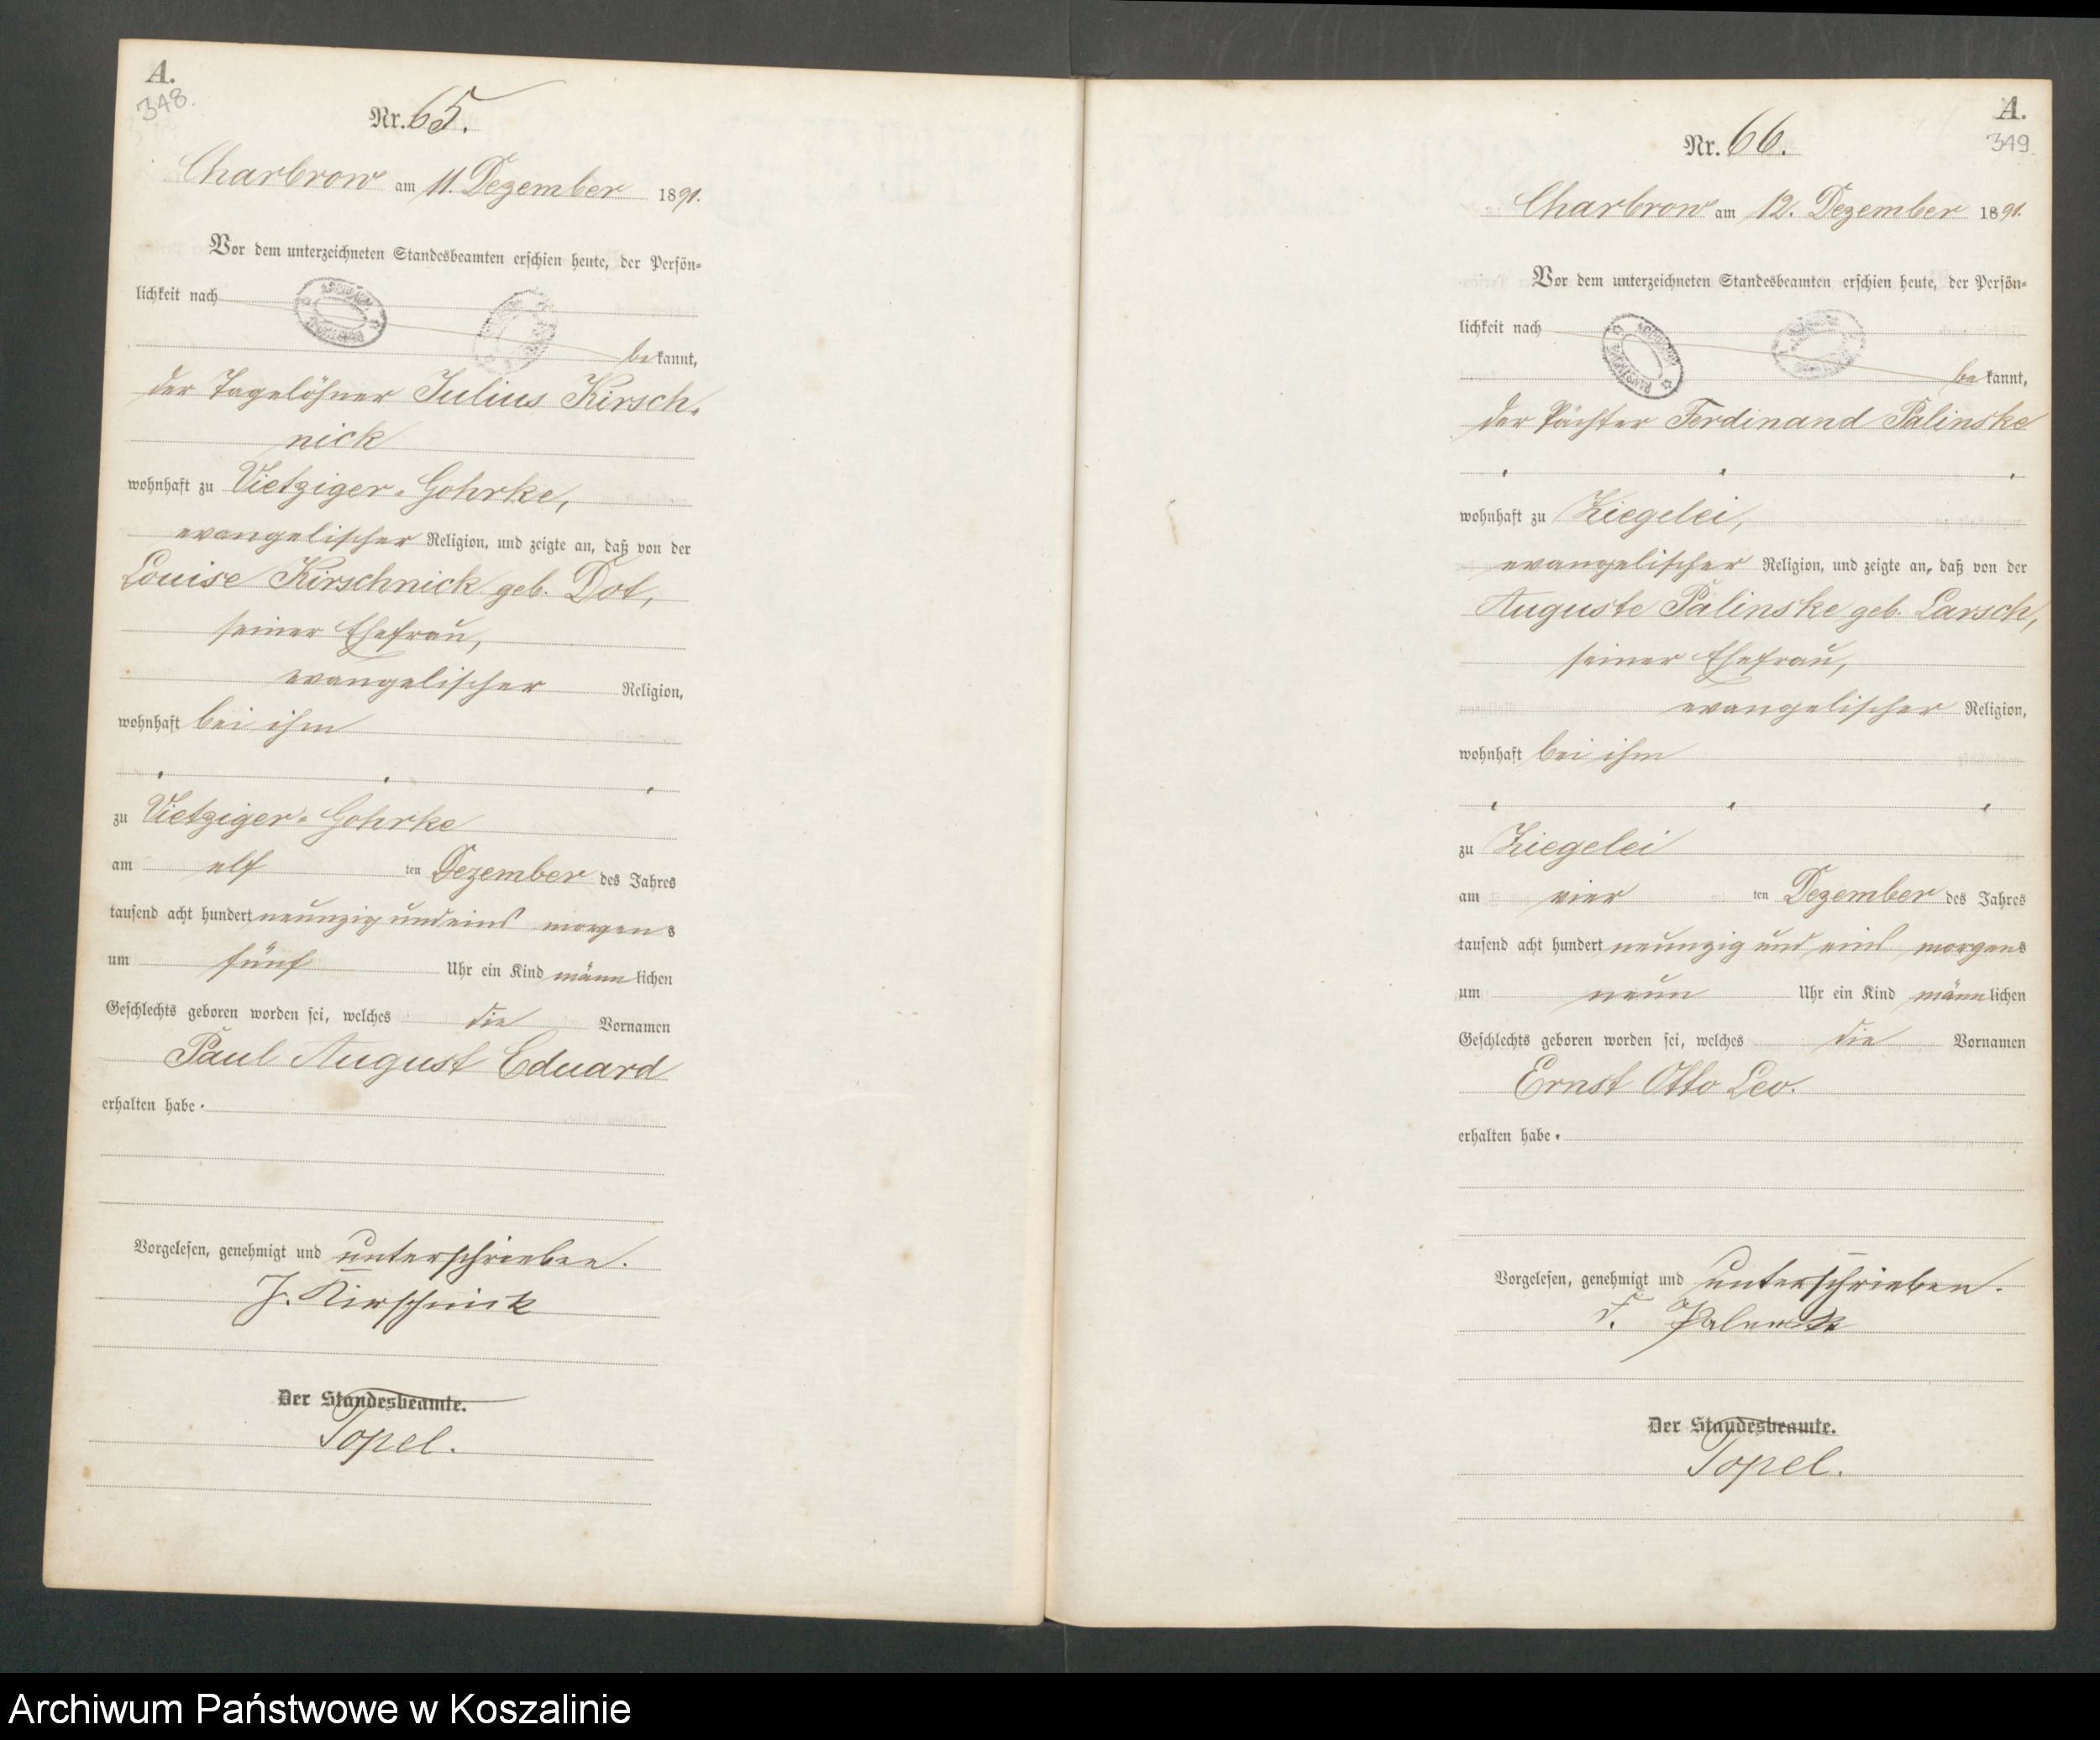 A.
348.
Nr. 65.
Charbrow am 11. Dezember 1891.
Vor dem unterzeichneten Standesbeamten erschien heute, der Persön=
lichkeit nach
be kannt,
der Tagelöhner Julius Kirsch=
nick
wohnhaft zu Vietziger=Gohrke,
evangelischer Religion, und zeigte an, daß von der
Louise Kirschnick geb. Dot,
seiner Ehefrau,
evangelischer Religion,
wohnhaft bei ihm
zu Vietziger=Gohrke
am elf ten Dezember des Jahres
tausend acht hundert neunzig und eins morgens
um fünf Uhr ein Kind männlichen
Geschlechts geboren worden sei, welches die Vornamen
Paul August Eduard
erhalten habe.
Vorgelesen, genehmigt und unterschrieben.
J. Kirschnick
Der Standesbeamte.
Topel.
A.
349
Nr. 66.
Charbrow am 12. Dezember 1891.
Vor dem unterzeichneten Standesbeamten erschien heute, der Persön=
lichkeit nach
be kannt,
der Pächter Ferdinand Palinske
wohnhaft zu Ziegelei,
evangelischer Religion, und zeigte an, daß von der
Auguste Palinske geb. Larsch,
seiner Ehefrau,
evangelischer Religion,
wohnhaft bei ihm
zu Ziegelei
am vier ten Dezember des Jahres
tausend acht hundert neunzig und eins morgens
um neun Uhr ein Kind männlichen
Geschlechts geboren worden sei, welches die Vornamen
Ernst Otto Leo.
erhalten habe.
Vorgelesen, genehmigt und unterschrieben.
F.
Der Standesbeamte.
Topel.
Archiwum Państwowe w Koszalinie